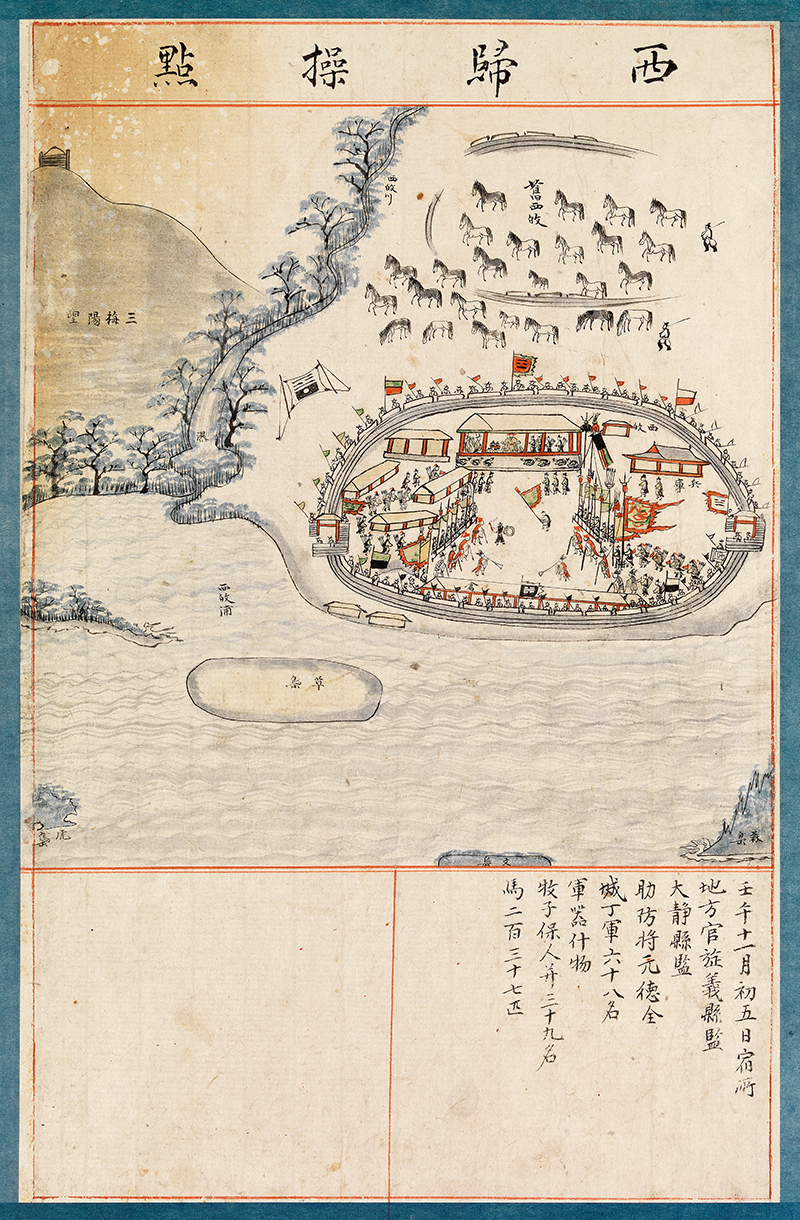 西歸操點
西㱕川
舊西㱕
三梅陽望
瀑
西㱕
西㱕浦
草島
虎島
森島
文島
壬午十一月初五日宿所
地方官旌義縣監
大靜縣監
助防將元德全
城丁軍六十八名
軍器什物
牧子保人幷三十九名
馬二百三十七匹